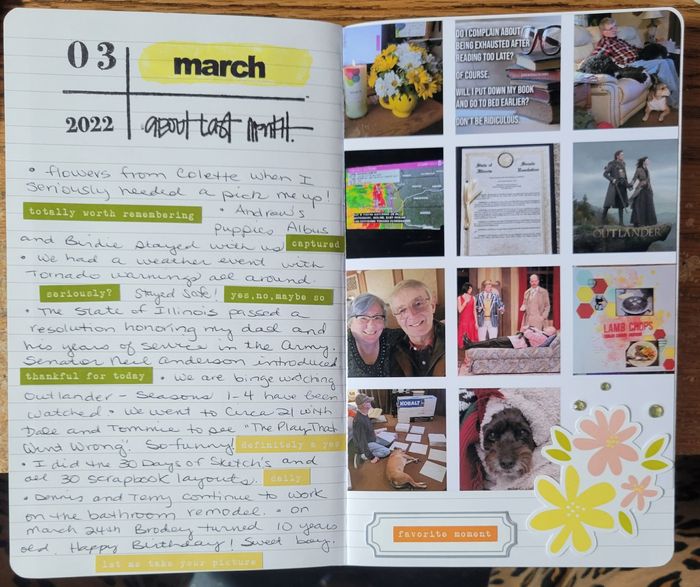 03
march
2022
about last month.
• flowers from Colette when I
seriously needed a pick me up!
totally worth remembering • Andrew's
puppies Albus
and Birdie stayed with us captured
• We had a weather event with
Tornado warnings all around.
seriously? Stayed Safe! yes, no, maybe so
• The State of Illinois passed a
resolution honoring my dad and
his years of service in the Army.
Senator Neil Anderson introduced
thankful for today • we are binge watching
Outlander - Seasons 1-4 have been
watched • We went to Circa 21 with
Dale and Tommie to see "The Play That
Went Wrong". So funny! definitely a yes
• I did the 30 Days of Sketch's and
all 30 scrapbook layouts. daily
• Dennis and Terry continue to work
on the bathroom remodel. • on
March 24th Brodey turned 10 years
old. Happy Birthday! Sweet boy.
let me take your picture
DO I COMPLAIN ABOUT
BEING EXHAUSTED AFTER
READING TOO LATE?
OF COURSE.
WILL I PUT DOWN MY BOOK
AND GO TO BED EARLIER?
DON'T BE RIDICULOUS.
OUTLANDER
LAMB CHOPS
KOBALT
favorite moment